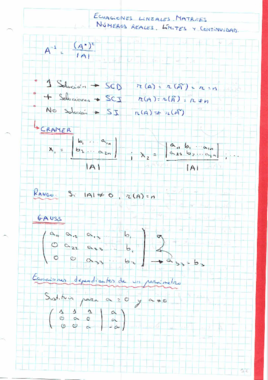 ECUACIONES LINEALES, MATRICES
NÚMEROS REALES, LÍMITES Y CONTINUIDAD
A⁻¹ = (A*)ᵗ / |A|
* 1 Solución → SCD r(A) = r(A*) = n
* + Soluciones → SCI r(A) = r(A*) ≠ n
* No Solución → SI r(A) ≠ r(A*)
CRAMER
x₁ = | b₁ ... a₁ₙ | ; x₂ = | a₁₁ b₁ a₁ₙ | , ...
|A| |A|
RANGO: Si |A| ≠ 0, r(A) = n
GAUSS
a₁₁ a₁₂ a₁₃ b₁
0 a₂₂ a₂₃ b₂
0 0 a₃₃ b₃ → a₃₃ = b₃
Ecuaciones dependientes de un parámetro
Sustituir para a = 0 y a ≠ 0
1 1 1 | a
0 a 0 | a
0 0 a | -a